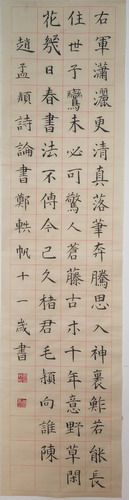 右軍瀟灑更清真落筆奔騰思入神裹鮓若能長
住世子鸞未必可驚人蒼藤古木千年意野草閑
花幾日春書法不傳今已久楮君毛穎向誰陳
趙孟頫詩論書鄭軼帆十一歲書